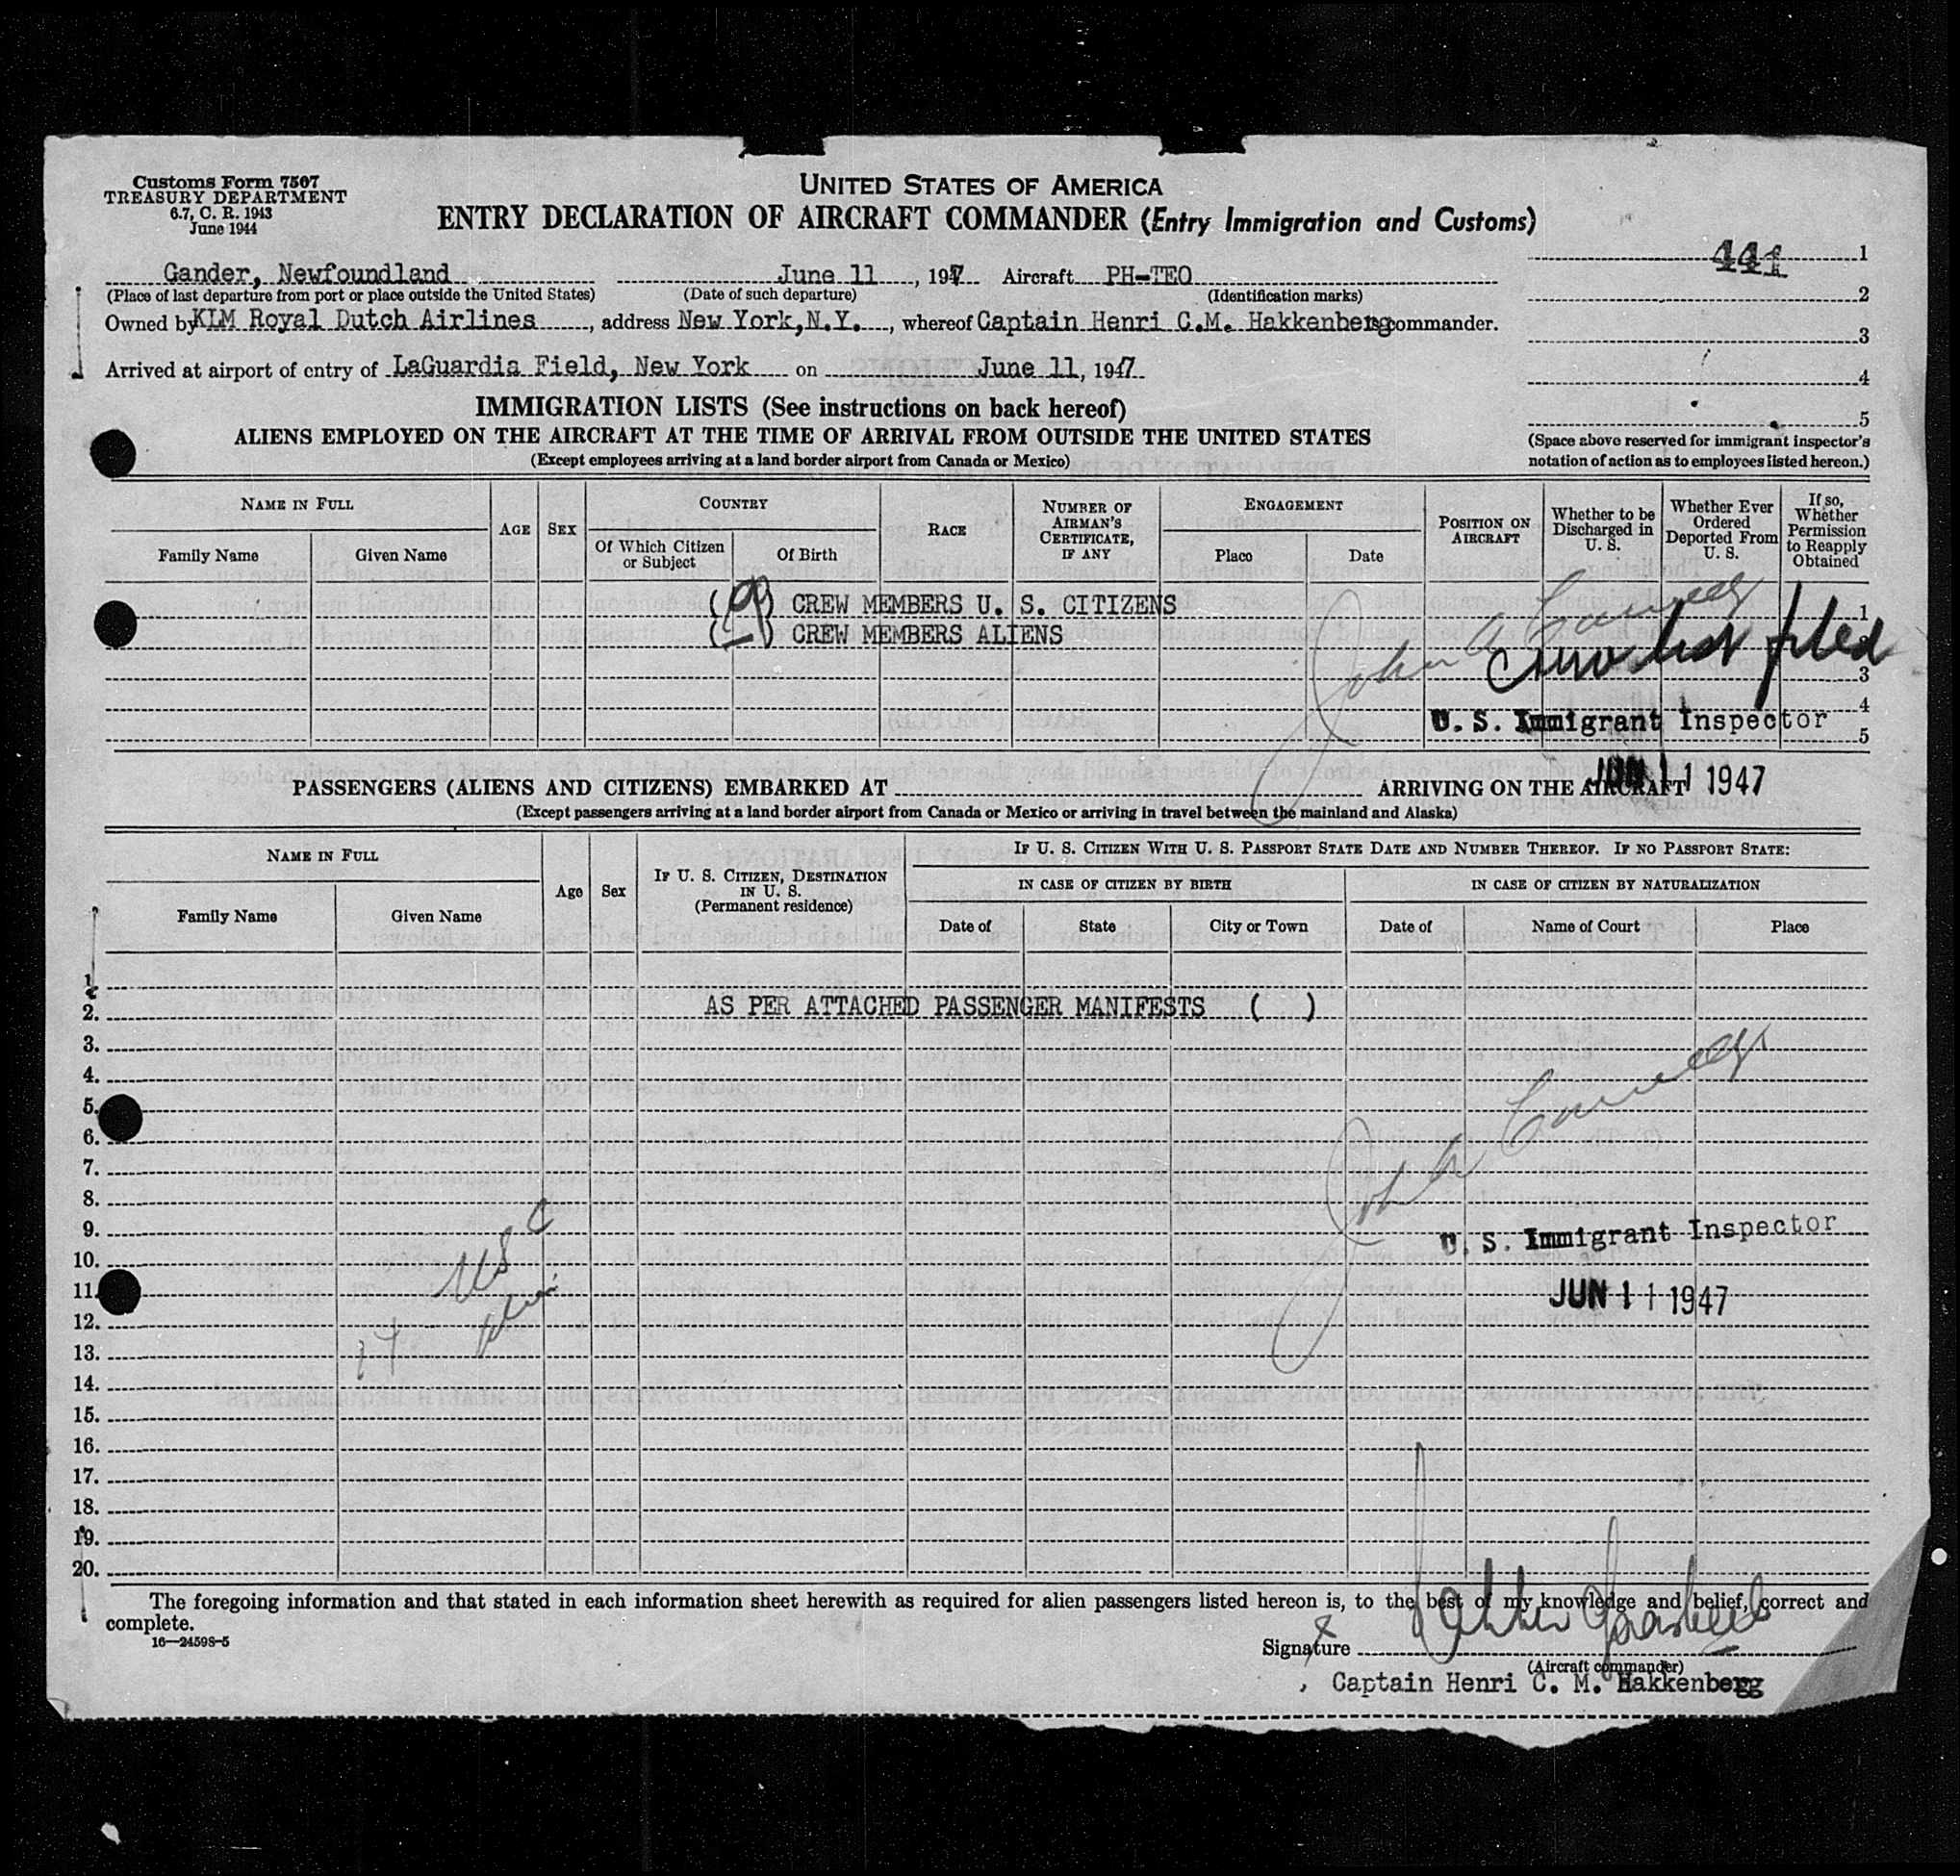 Customs Form 7507
TREASURY DEPARTMENT
6.7, C. R. 1943
June 1944
UNITED STATES OF AMERICA
ENTRY DECLARATION OF AIRCRAFT COMMANDER (Entry Immigration and Customs)
441 1
Gander, Newfoundland June 11, 1947 Aircraft PH-TEO
(Place of last departure from port or place outside the United States) (Date of such departure) (Identification marks)
2
Owned by KLM Royal Dutch Airlines, address New York, N.Y., whereof Captain Henri C.M. Hakkenberg is commander.
3
Arrived at airport of entry of LaGuardia Field, New York on June 11, 1947
4
IMMIGRATION LISTS (See instructions on back hereof)
5
ALIENS EMPLOYED ON THE AIRCRAFT AT THE TIME OF ARRIVAL FROM OUTSIDE THE UNITED STATES
(Except employees arriving at a land border airport from Canada or Mexico)
(Space above reserved for immigrant inspector's
notation of action as to employees listed hereon.)
NAME IN FULL
Family Name
Given Name
AGE
SEX
COUNTRY
Of Which Citizen
or Subject
Of Birth
RACE
NUMBER OF
AIRMAN'S
CERTIFICATE,
IF ANY
ENGAGEMENT
Place
Date
POSITION ON
AIRCRAFT
Whether to be
Discharged in
U. S.
Whether Ever
Ordered
Deported From
U. S.
If so,
Whether
Permission
to Reapply
Obtained
( ) CREW MEMBERS U. S. CITIZENS 1
(9) CREW MEMBERS ALIENS
Crew list filed
3
4
U. S. Immigrant Inspector
5
JUN 11 1947
PASSENGERS (ALIENS AND CITIZENS) EMBARKED AT ARRIVING ON THE AIRCRAFT
(Except passengers arriving at a land border airport from Canada or Mexico or arriving in travel between the mainland and Alaska)
NAME IN FULL
Family Name
Given Name
Age
Sex
IF U. S. CITIZEN, DESTINATION
IN U. S.
(Permanent residence)
IF U. S. CITIZEN WITH U. S. PASSPORT STATE DATE AND NUMBER THEREOF. IF NO PASSPORT STATE:
IN CASE OF CITIZEN BY BIRTH
Date of
State
City or Town
IN CASE OF CITIZEN BY NATURALIZATION
Date of
Name of Court
Place
1.
2. AS PER ATTACHED PASSENGER MANIFESTS ( )
3.
4.
5.
6.
7.
8.
9.
U. S. Immigrant Inspector
10. USC
11.
JUN 11 1947
12.
13. 17
14.
15.
16.
17.
18.
19.
20.
The foregoing information and that stated in each information sheet herewith as required for alien passengers listed hereon is, to the best of my knowledge and belief, correct and
complete.
16—24598-5
Signature
(Aircraft commander)
Captain Henri C. M. Hakkenberg